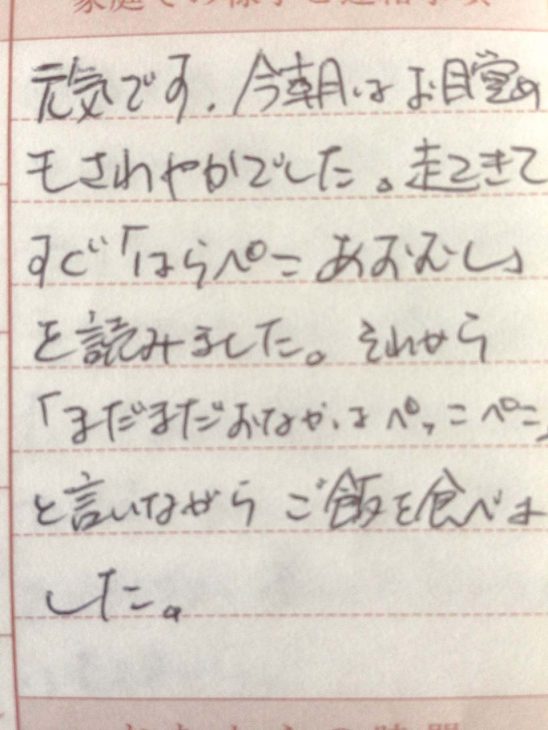 家庭での様子と連絡事項
元気です。今朝はお目覚め
もさわやかでした。起きて
すぐ「はらぺこあおむし」
を読みました。それから
「まだまだおなかはぺっこぺこ」
と言いながらご飯を食べま
した。